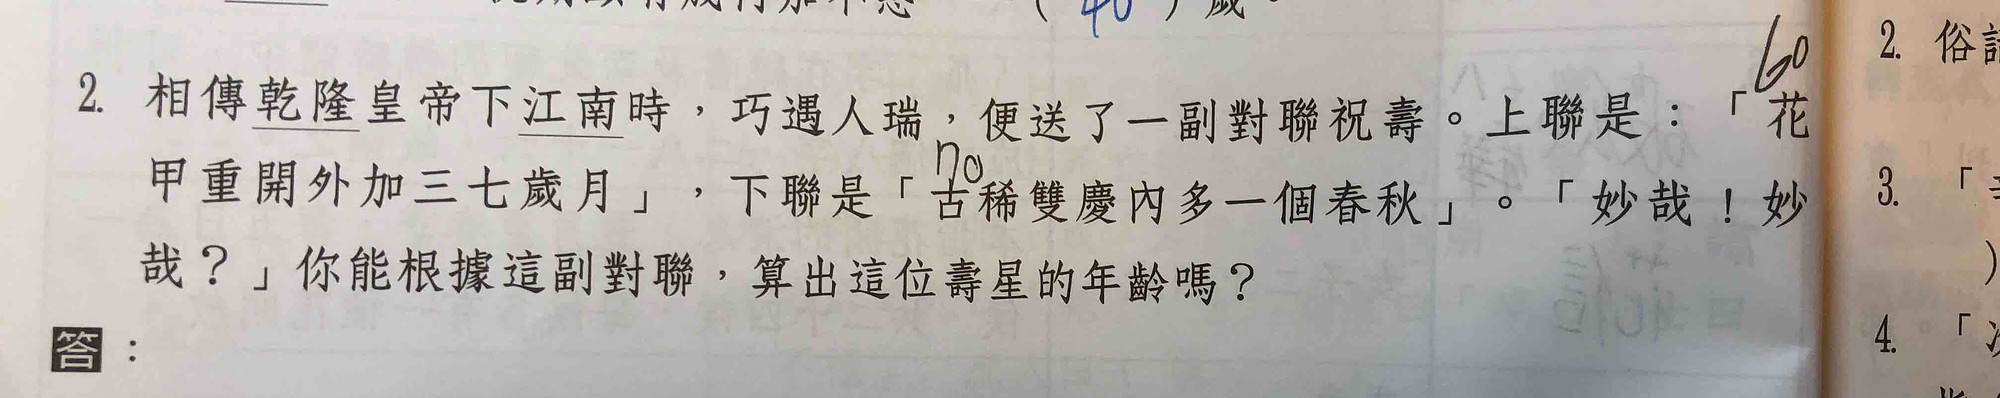 ( 40 ) 歲。
60
2. 相傳乾隆皇帝下江南時，巧遇人瑞，便送了一副對聯祝壽。上聯是：「花
70
甲重開外加三七歲月」，下聯是「古稀雙慶內多一個春秋」。「妙哉！妙
哉？」你能根據這副對聯，算出這位壽星的年齡嗎？
答：
2. 俗
3. 「
)
4. 「